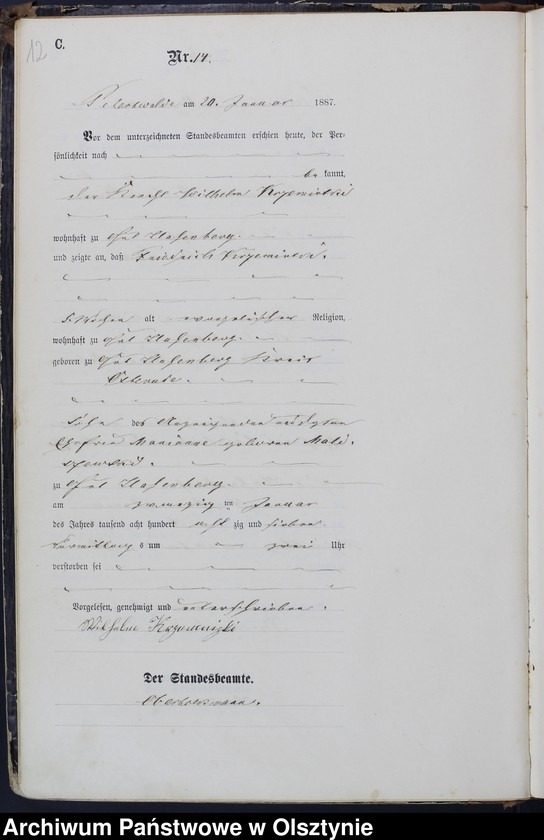 12
C.
Nr. 14.
Peterswalde am 20. Januar 1887.
Vor dem unterzeichneten Standesbeamten erschien heute, der Per-
sönlichkeit nach
be kannt,
der Knecht Wilhelm
wohnhaft zu Gut
und zeigte an, daß Friedrich
5 Wochen alt evangelischer Religion,
wohnhaft zu Gut
geboren zu Gut Kreis
Osterode.
Sohn des Anzeigenden und dessen
Ehefrau Marianne geborenen
zu Gut
am zwanzigsten Januar
des Jahres tausend acht hundert acht zig und sieben
Vormittags um zwei Uhr
verstorben sei
Vorgelesen, genehmigt und unterschrieben.
Wilhelm
Der Standesbeamte.
Archiwum Państwowe w Olsztynie